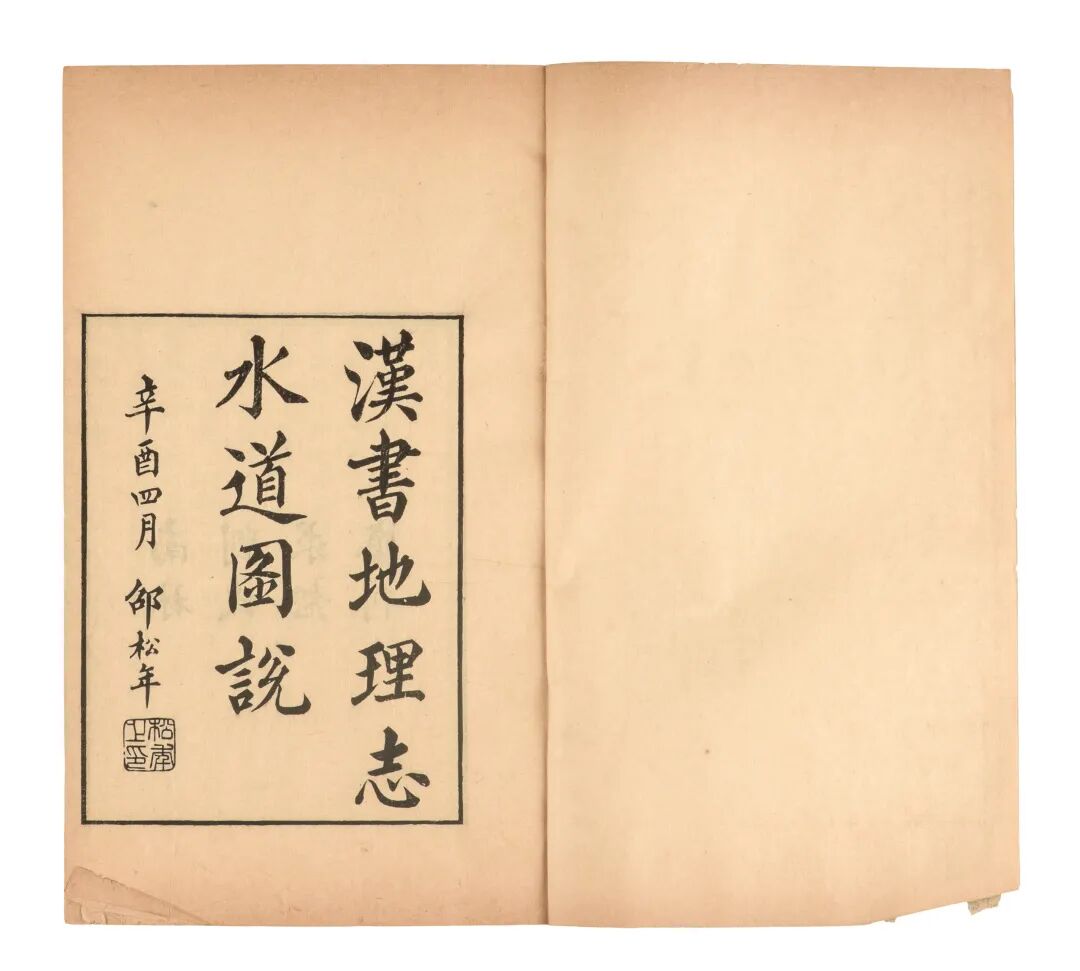 漢書地理志
水道圖說
辛酉四月 邵松年
松年之印